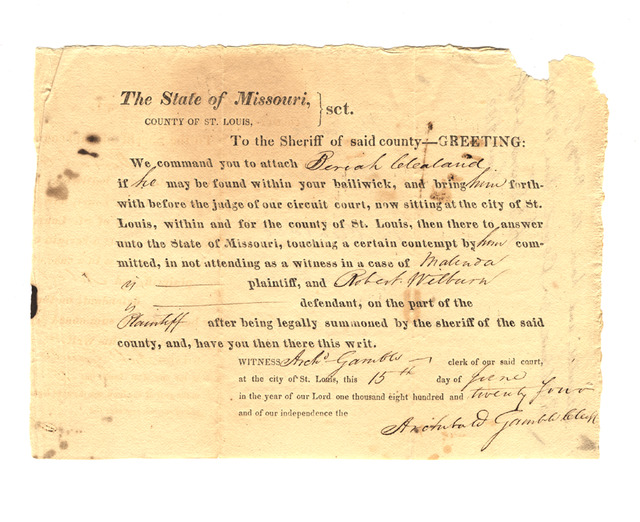 The State of Missouri, } sct.
COUNTY OF ST. LOUIS,
To the Sheriff of said county—GREETING:
We command you to attach Beriah Cleland
if he may be found within your bailiwick, and bring him forth-
with before the judge of our circuit court, now sitting at the city of St.
Louis, within and for the county of St. Louis, then there to answer
unto the State of Missouri, touching a certain contempt by him com-
mitted, in not attending as a witness in a case of Malinda
is plaintiff, and Robert Wilburn
is defendant, on the part of the
Plaintiff after being legally summoned by the sheriff of the said
county, and, have you then there this writ.
WITNESS Archd Gamble clerk of our said court,
at the city of St. Louis, this 15th day of June
in the year of our Lord one thousand eight hundred and twenty four
and of our independence the
Archibald Gamble Clerk